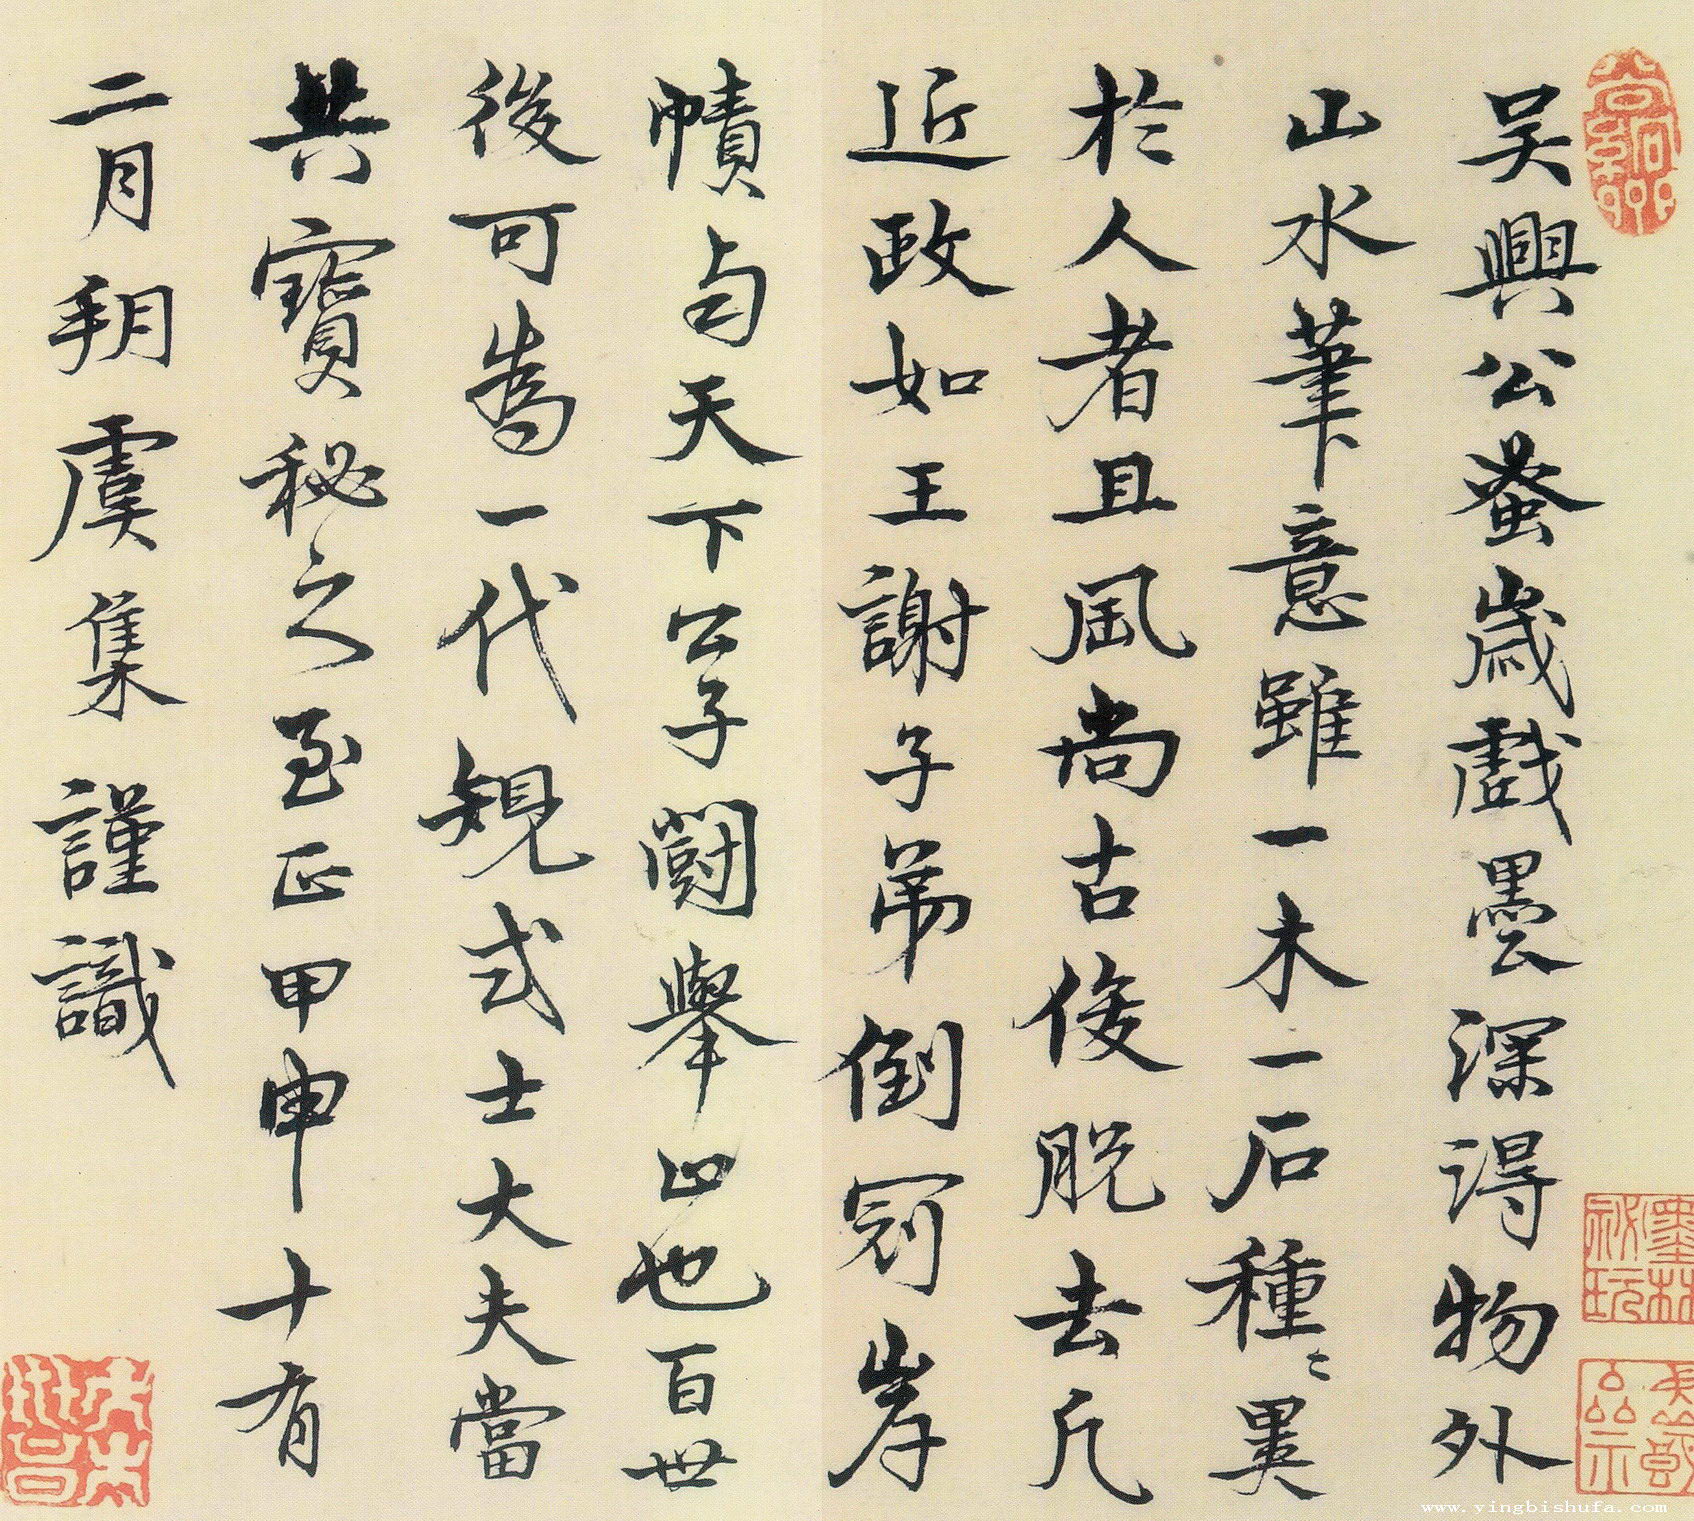 吳興公蚤歲戲墨深得物外
山水筆意雖一木一石種〻異
於人者且風尚古俊脫去凡
近政如王謝子弟倒冠岸
幘與天下公子鬪舉止也百世
後可為一代規式士大夫當
共寶秘之至正甲申十有
二月朔虞集謹識
www.yingbishufa.com